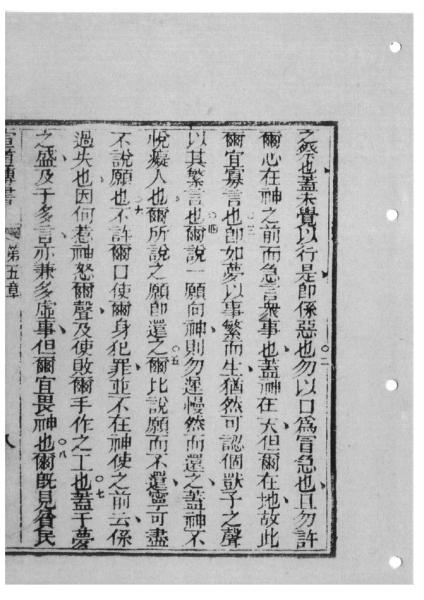 之祭也蓋未覺以行是即係惡也勿以口爲冒急也且勿許
二
爾心在神之前而急言衆事也蓋神在天但爾在地故此
爾宜寡言也即如夢以事繁而生猶然可認個獃子之聲
三
以其繁言也爾說一願向神則勿遲慢然而還之蓋神不
四
悅癡人也爾所說之願即還之爾比說願而不還寧可盡
五
不說願也不許爾口使爾身犯罪並不在神使之前云係
六
過失也因何惹神怒爾聲及使敗爾手作之工也蓋于夢
七
之盛及于多言亦兼多虛事但爾宜畏神也爾旣見貧民
八
第五章
八